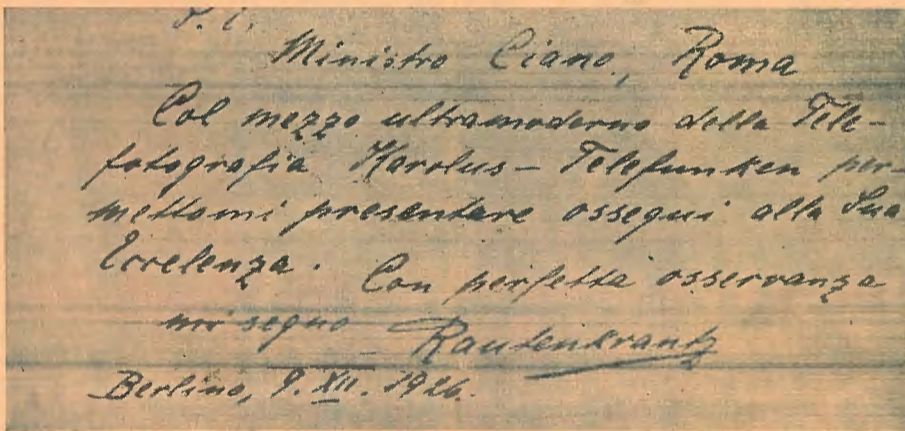 Ministro Ciano, Roma
Col mezzo ultramoderno della Tele-
fotografia Karolus-Telefunken per-
mettomi presentare ossequi alla Sua
Eccelenza. Con perfetta osservanza
mi segno Rautenkrantz
Berlino, 9. XII. 1926.